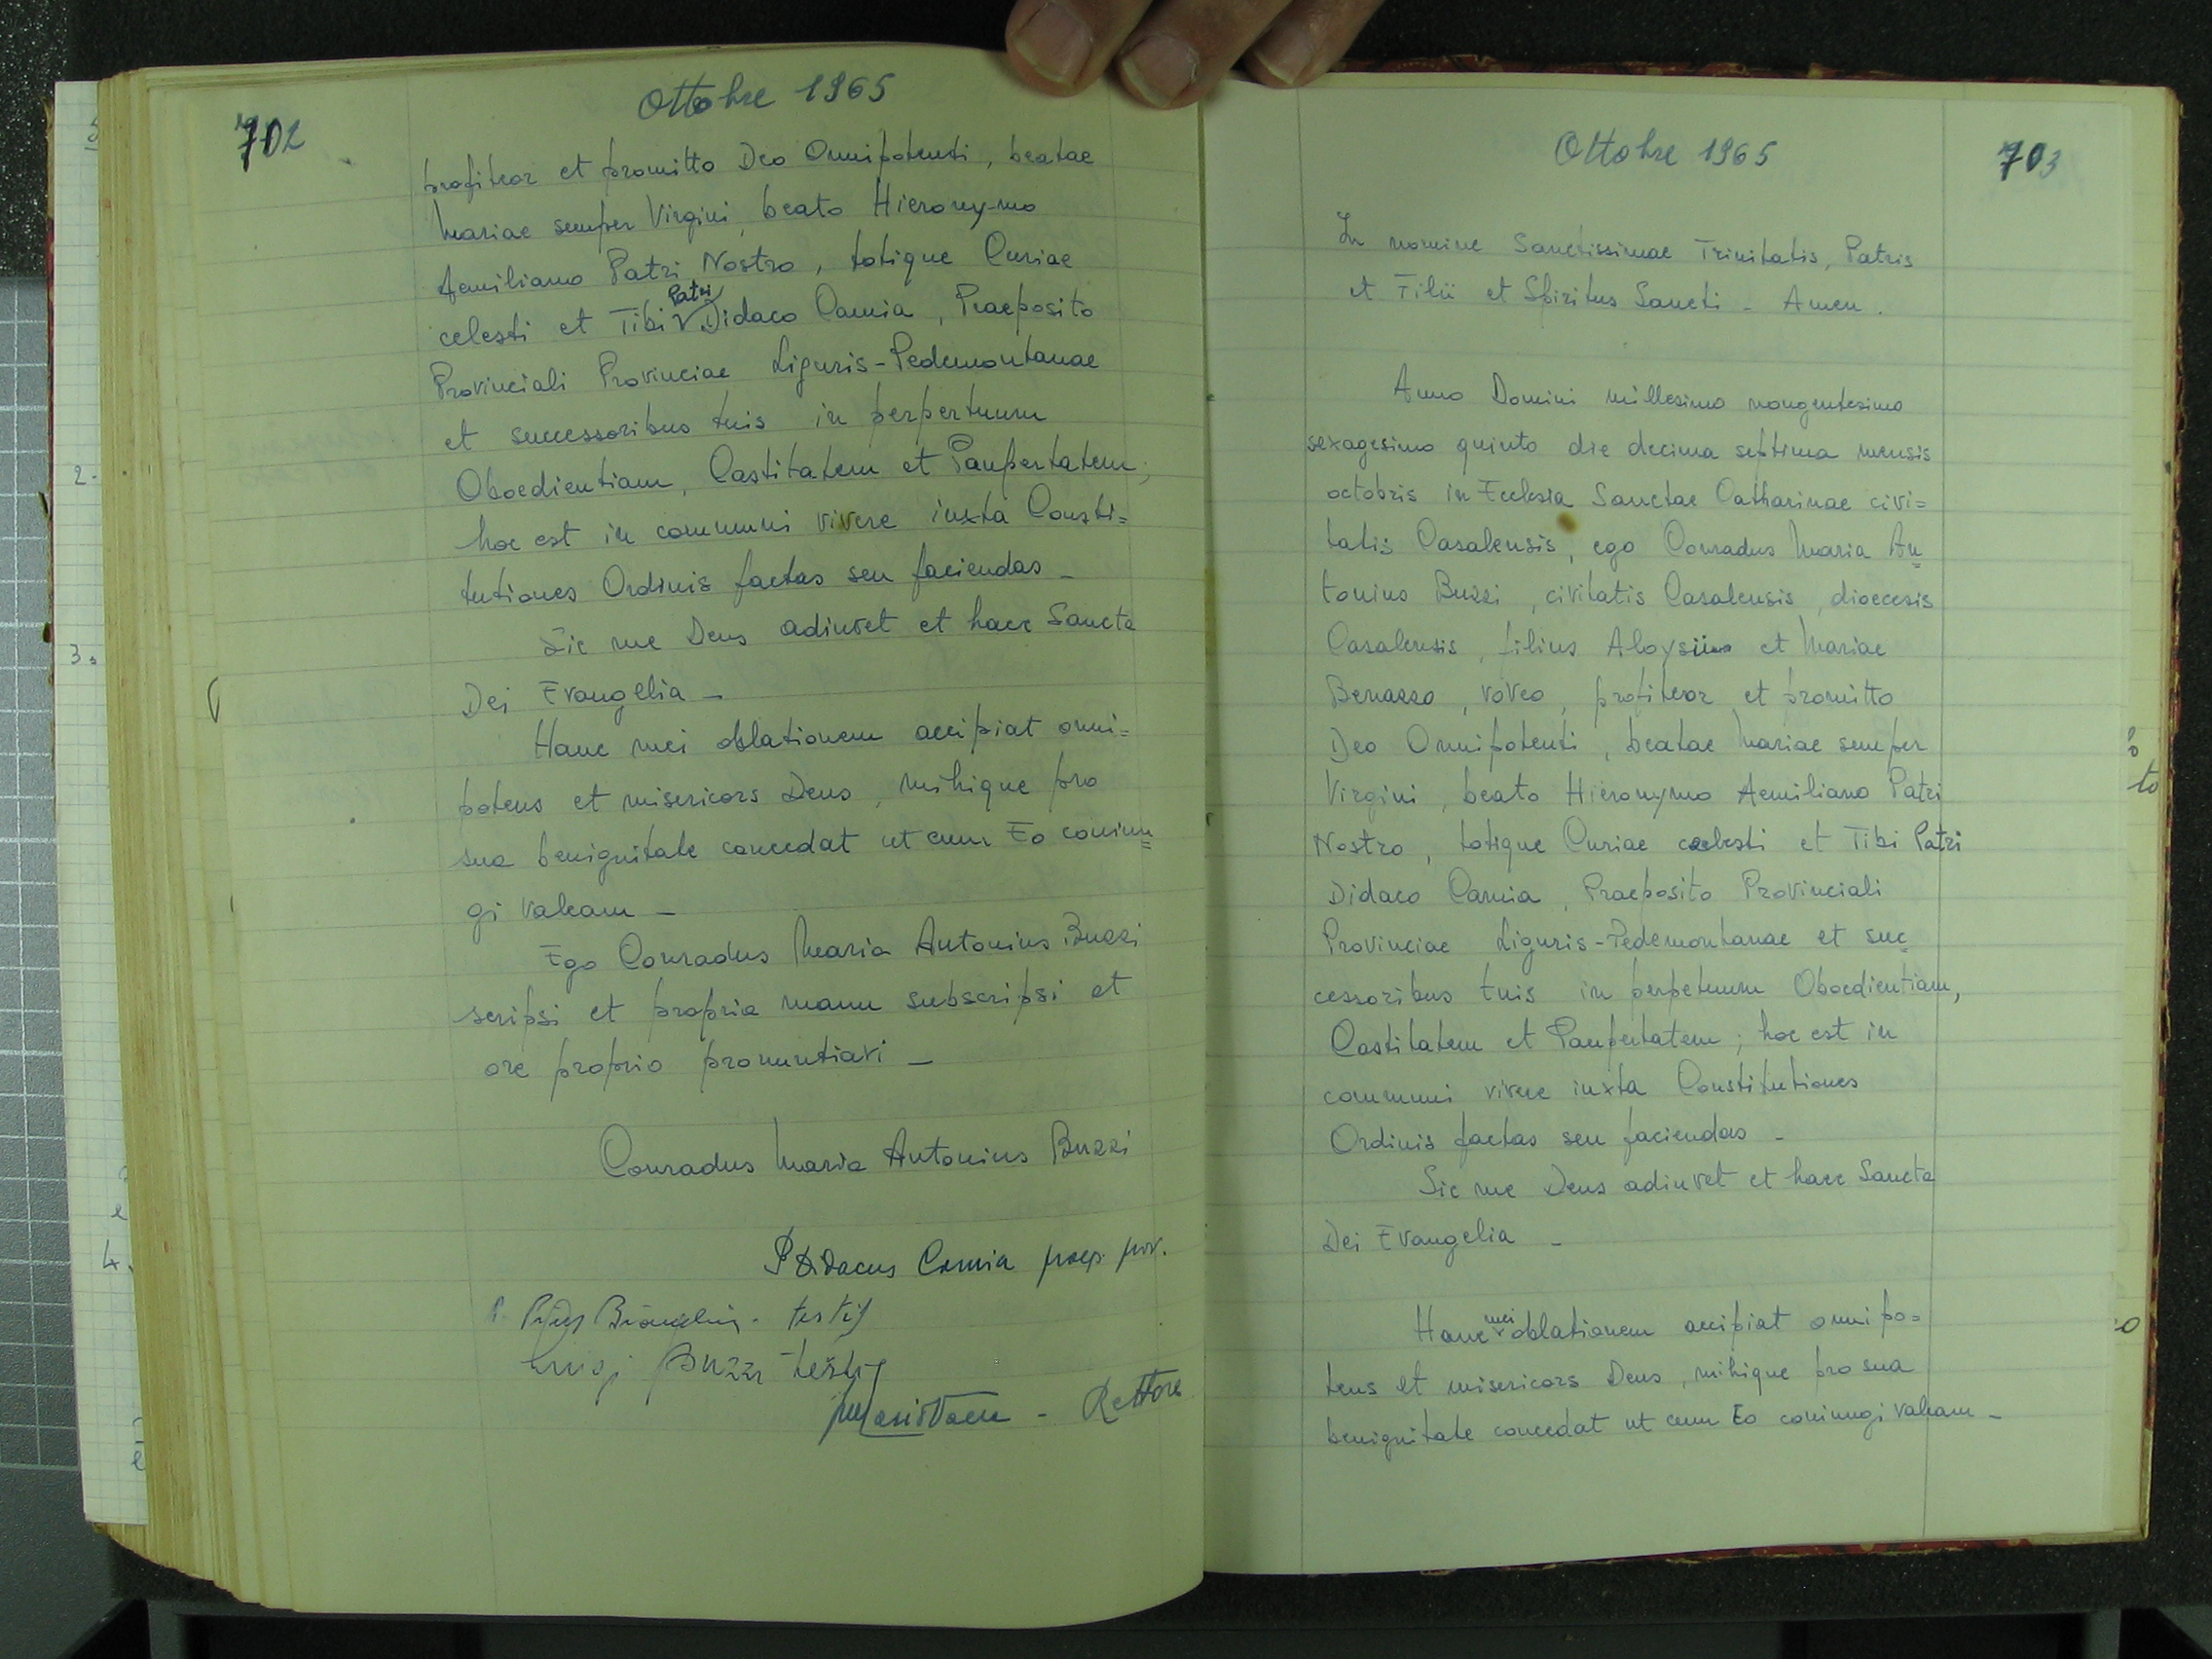 702
Ottobre 1965
profiteor et promitto Deo Omnipotenti, beatae
Mariae semper Virgini, beato Hieronymo
Aemiliano Patri Nostro, totique Curiae
celesti et Tibi Patri Didaco Camia, Praeposito
Provinciali Provinciae Liguris-Pedemontanae
et successoribus tuis in perpertuum
Oboedientiam, Castitatem et Paupertatem;
hoc est in communi vivere iuxta Consti=
tutiones Ordinis factas seu faciendas -
Sic me Deus adiuvet et haec Sancta
Dei Evangelia -
Hanc mei oblationem accipiat omni=
potens et misericors Deus, mihique pro
sua benignitate concedat ut cum Eo coniun=
gi valeam -
Ego Conradus Maria Antonius Buzzi
scripsi et propria manu subscripsi et
ore proprio pronuntiavi -
Conradus Maria Antonius Buzzi
P Didacus Camia praep. prov.
P. testis
Luigi Buzzi testis
- Rettore
2.
3.
4.
Ottobre 1965
703
In nomine Sanctissimae Trinitatis, Patris
et Filii et Spiritus Sancti - Amen.
Anno Domini millesimo nongentesimo
sexagesimo quinto die decima septima mensis
octobris in Ecclesia Sanctae Catharinae civi=
tatis Casalensis, ego Conradus Maria An=
tonius Buzzi, civitatis Casalensis, dioecesis
Casalensis, filius Aloysii et Mariae
Benazzo, voveo, profiteor et promitto
Deo Omnipotenti, beatae Mariae semper
Virgini, beato Hieronymo Aemiliano Patri
Nostro, totique Curiae caelesti et Tibi Patri
Didaco Camia, Praeposito Provinciali
Provinciae Liguris-Pedemontanae et suc=
cessoribus tuis in perpetuum Oboedientiam,
Castitatem et Paupertatem; hoc est in
communi vivere iuxta Constitutiones
Ordinis factas seu faciendas -
Sic me Deus adiuvet et haec Sancta
Dei Evangelia -
Hanc mei oblationem accipiat omnipo=
tens et misericors Deus, mihique pro sua
benignitate concedat ut cum Eo coniungi valeam -
to